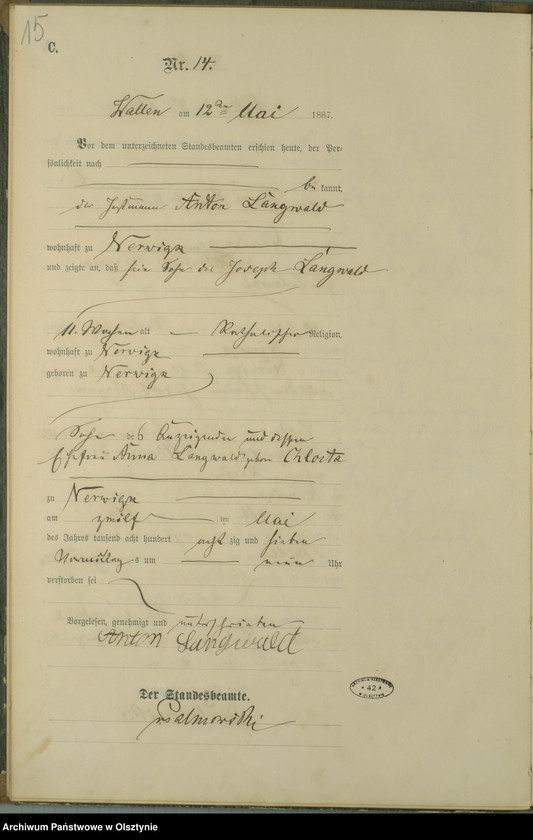 15
C.
Nr. 14.
Wallen am 12ten Mai 1887.
Vor dem unterzeichneten Standesbeamten erschien heute, der Per-
sönlichkeit nach
be kannt,
der Instmann Anton Langwald
wohnhaft zu Nerwigk
und zeigte an, daß sein Sohn der Joseph Langwald
11. Wochen alt Katholischer Religion,
wohnhaft zu Nerwigk
geboren zu Nerwigk
Sohn des Anzeigenden und dessen
Ehefrau Anna Langwald geborn Chlosta
zu Nerwigk
am zwölf ten Mai
des Jahres tausend acht hundert acht zig und sieben
Vormittag s um neun Uhr
verstorben sei
Vorgelesen, genehmigt und unterschrieben
Anton Langwald
Der Standesbeamte.
ARCHIWUM PAŃSTWOWE
* 42 *
W OLSZTYNIE
Archiwum Państwowe w Olsztynie